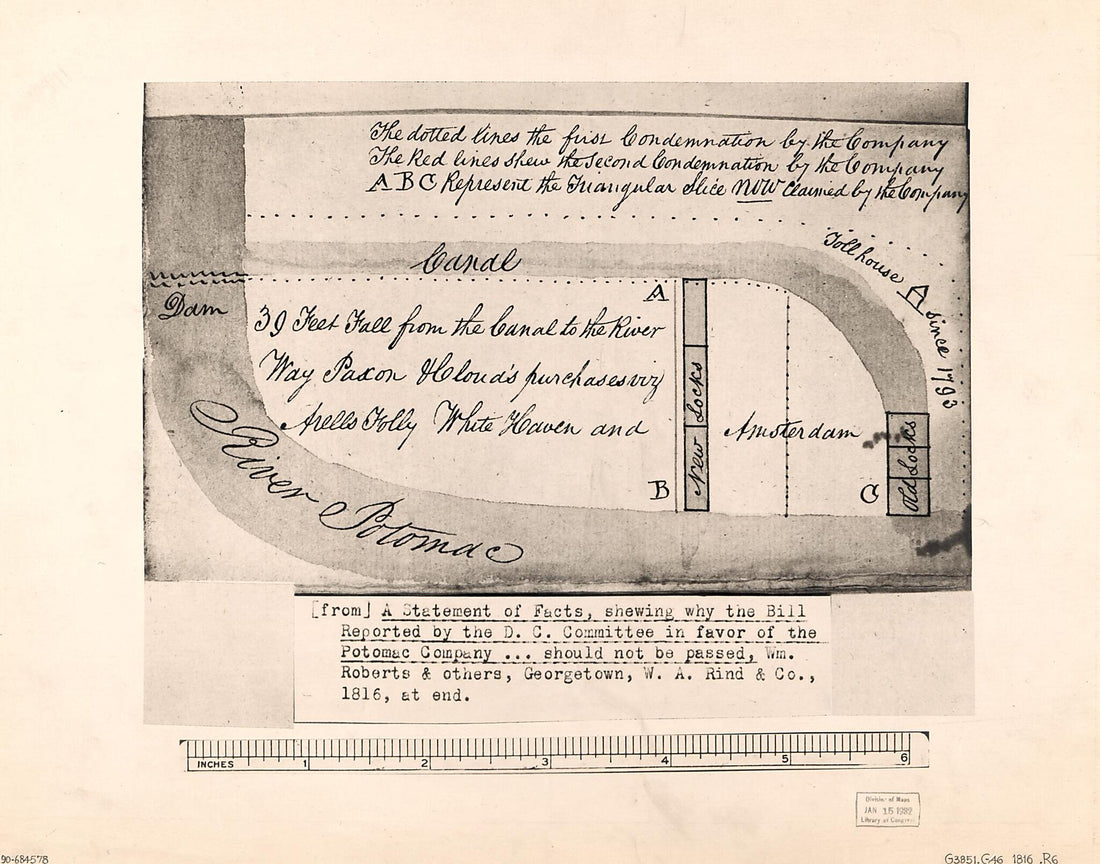 The dotted lines the first Condemnation by the Company
The Red lines shew the Second Condemnation by the Company
A B C Represent the Triangular Slice NOW Claimed by the Company
Canal
Tollhouse
since 1793
Dam
A
39 Feet Fall from the Canal to the River
Way Paxon & Cloud's purchases viz
Arells Folly White Haven and
Amsterdam
New Locks
Old Locks
B
C
River Potomac
[from] A Statement of Facts, shewing why the Bill
Reported by the D. C. Committee in favor of the
Potomac Company ... should not be passed, Wm.
Roberts & others, Georgetown, W. A. Rind & Co.,
1816, at end.
INCHES 1 2 3 4 5 6
Division of Maps
JAN 15 1982
Library of Congress
90-684578
G3851.G46 1816 .R6